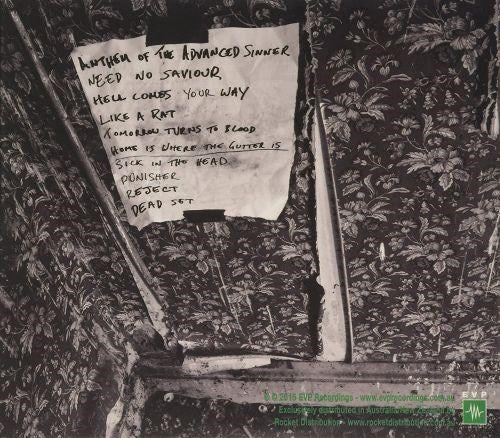 ANTHEM OF THE ADVANCED SINNER
NEED NO SAVIOUR
HELL COMES YOUR WAY
LIKE A RAT
TOMORROW TURNS TO BLOOD
HOME IS WHERE THE GUTTER IS
SICK IN THE HEAD
PUNISHER
REJECT
DEAD SET
℗ © 2015 EVP Recordings - www.evprecordings.com.au
Exclusively distributed in Australia/New Zealand by
Rocket Distribution - www.rocketdistribution.com.au
EVP